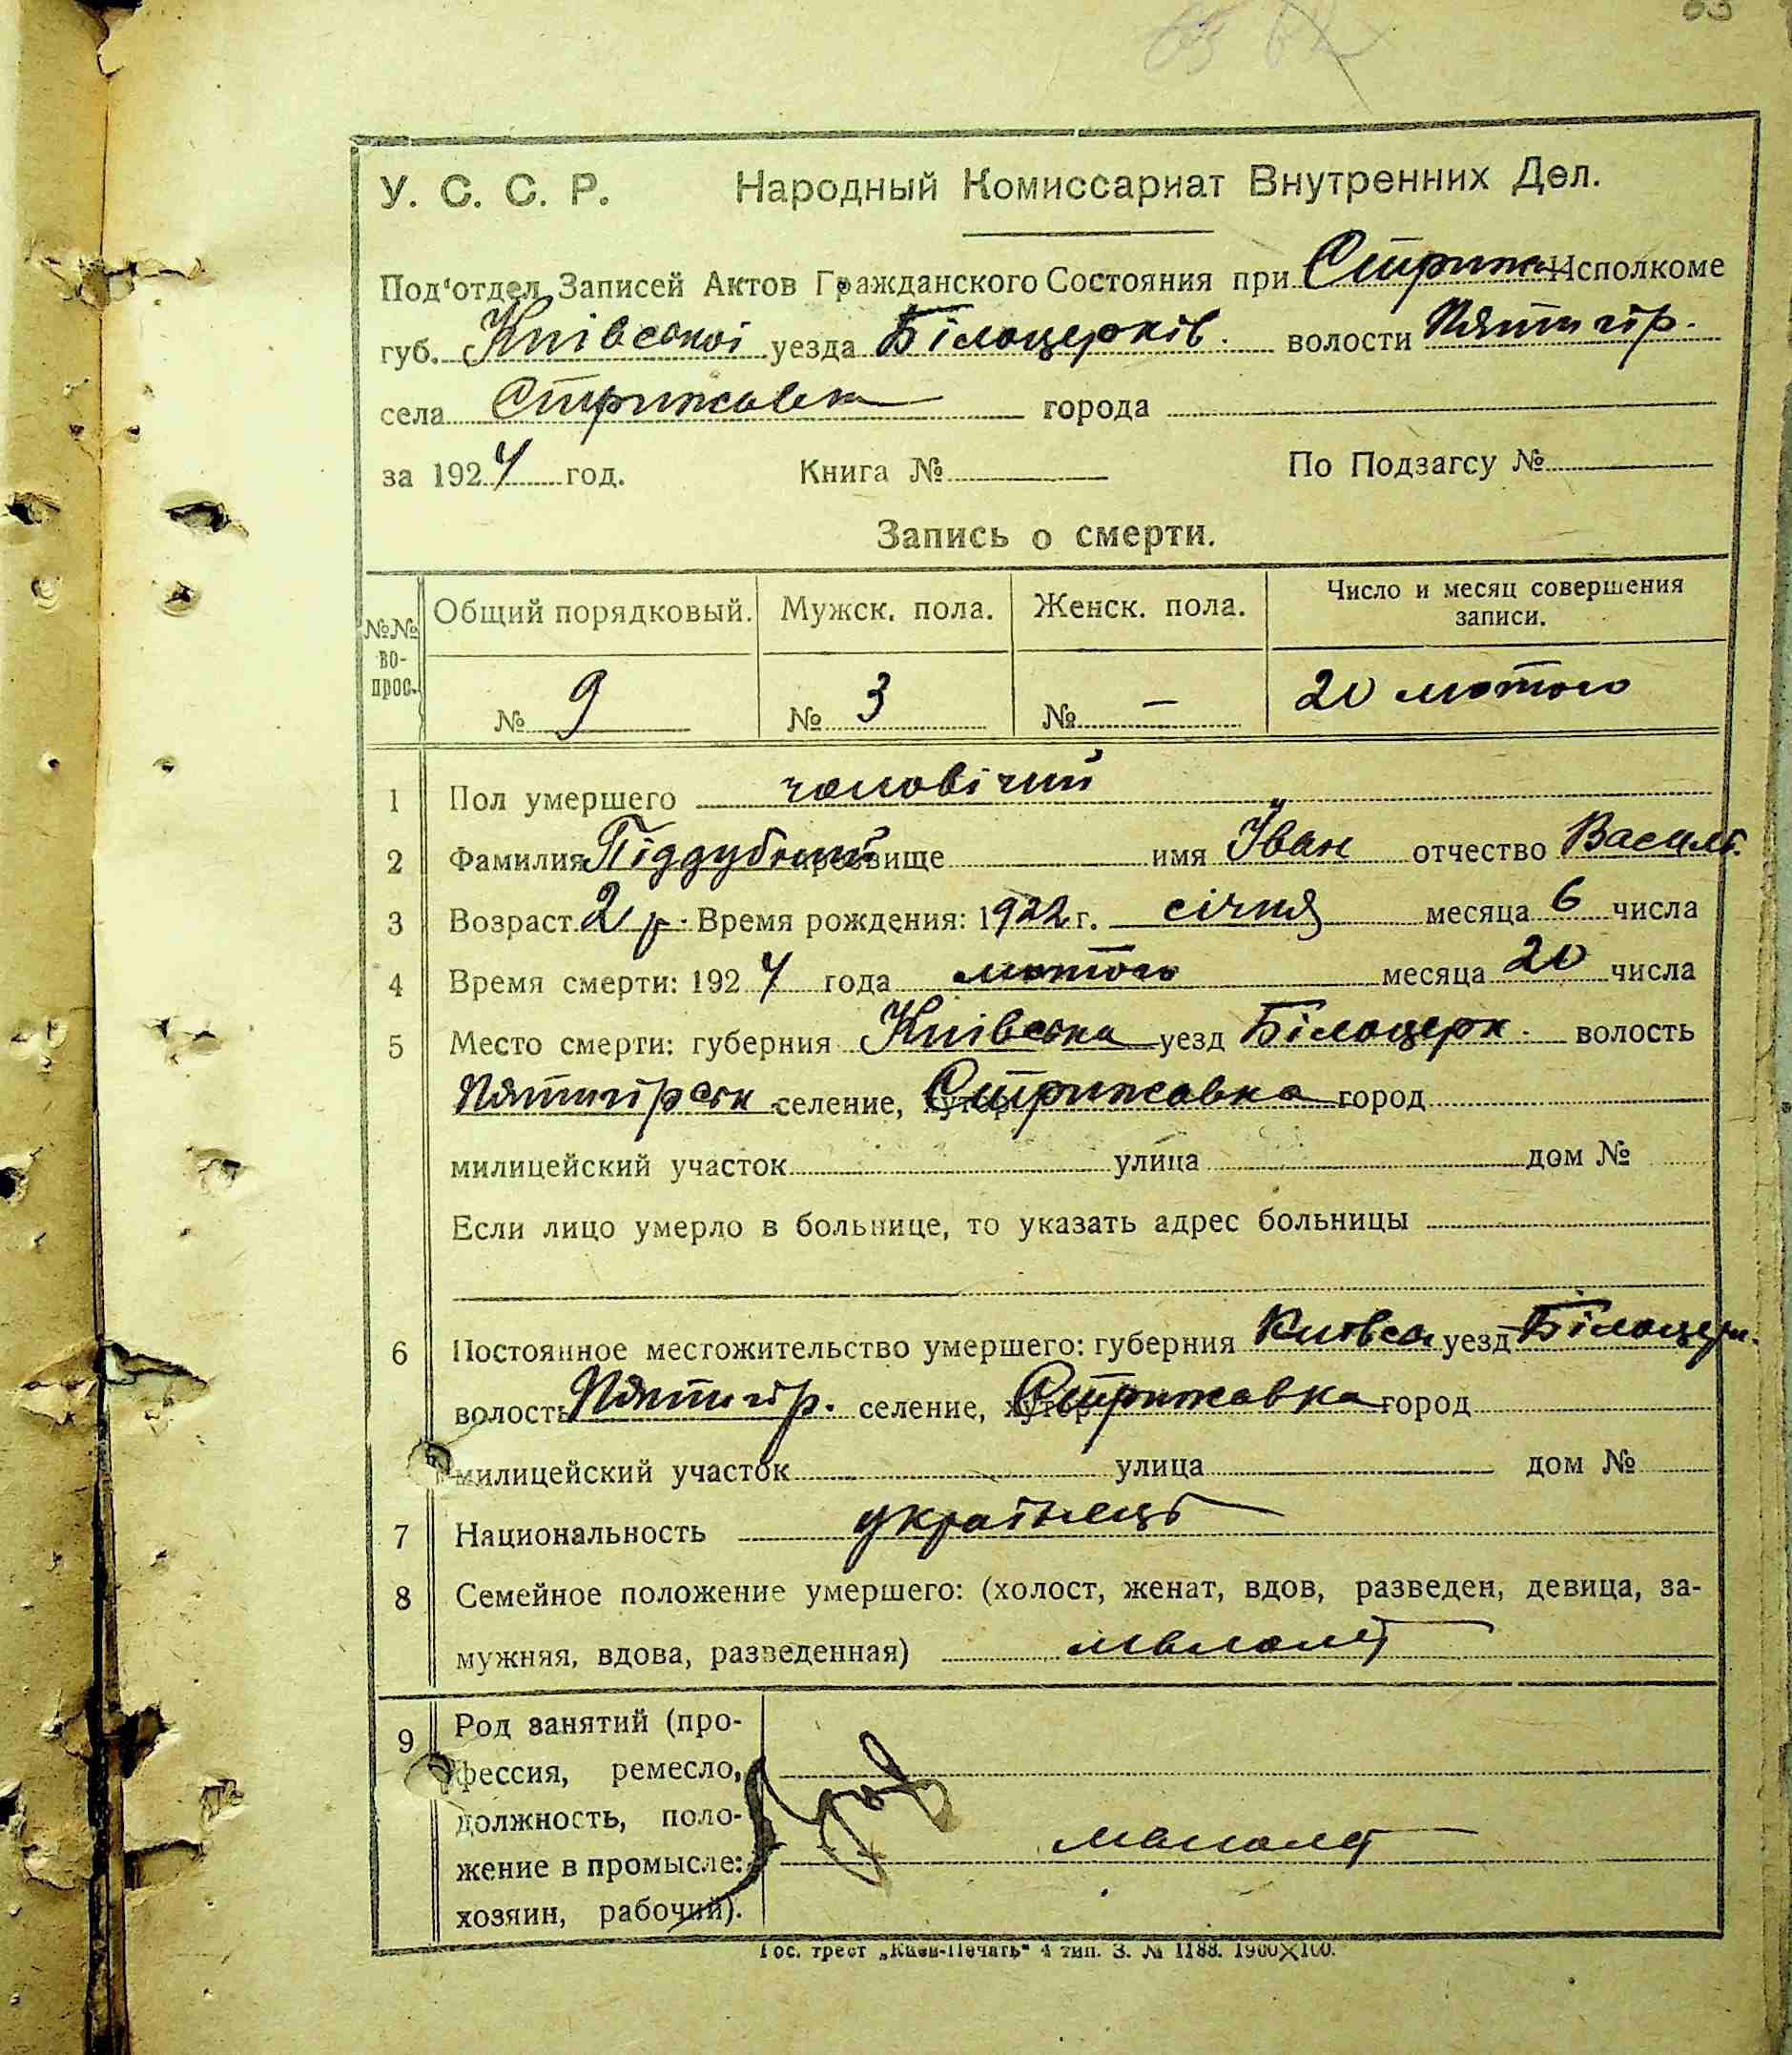 У. С. С. Р. Народный Комиссариат Внутренних Дел.
Под'отдел Записей Актов Гражданского Состояния при Стриж. Исполкоме
губ. Київської уезда Білоцерків. волости Пятигір.
села Стрижавка города
за 1924 год. Книга № По Подзагсу №
Запись о смерти.
№№ во- прос. Общий порядковый. Мужск. пола. Женск. пола. Число и месяц совершения записи.
№ 9 № 3 № — 20 лютого
1 Пол умершего чоловічий
2 Фамилия Піддубний прозвище имя Іван отчество Василь.
3 Возраст 2 р. Время рождения: 1922 г. січня месяца 6 числа
4 Время смерти: 1924 года лютого месяца 20 числа
5 Место смерти: губерния Київська уезд Білоцерк. волость
Пятигірськ селение, хутор Стрижавка город
милицейский участок улица дом №
Если лицо умерло в больнице, то указать адрес больницы
6 Постоянное местожительство умершего: губерния Київськ уезд Білоцерк.
волость Пятигір. селение, хутор Стрижавка город
милицейский участок улица дом №
7 Национальность українець
8 Семейное положение умершего: (холост, женат, вдов, разведен, девица, за-
мужняя, вдова, разведенная) малолет
9 Род занятий (про-
фессия, ремесло,
должность, поло-
жение в промысле: малолет
хозяин, рабочий).
Гос. трест „Киев-Печать" 4 тип. З. № 1188. 1900×100.